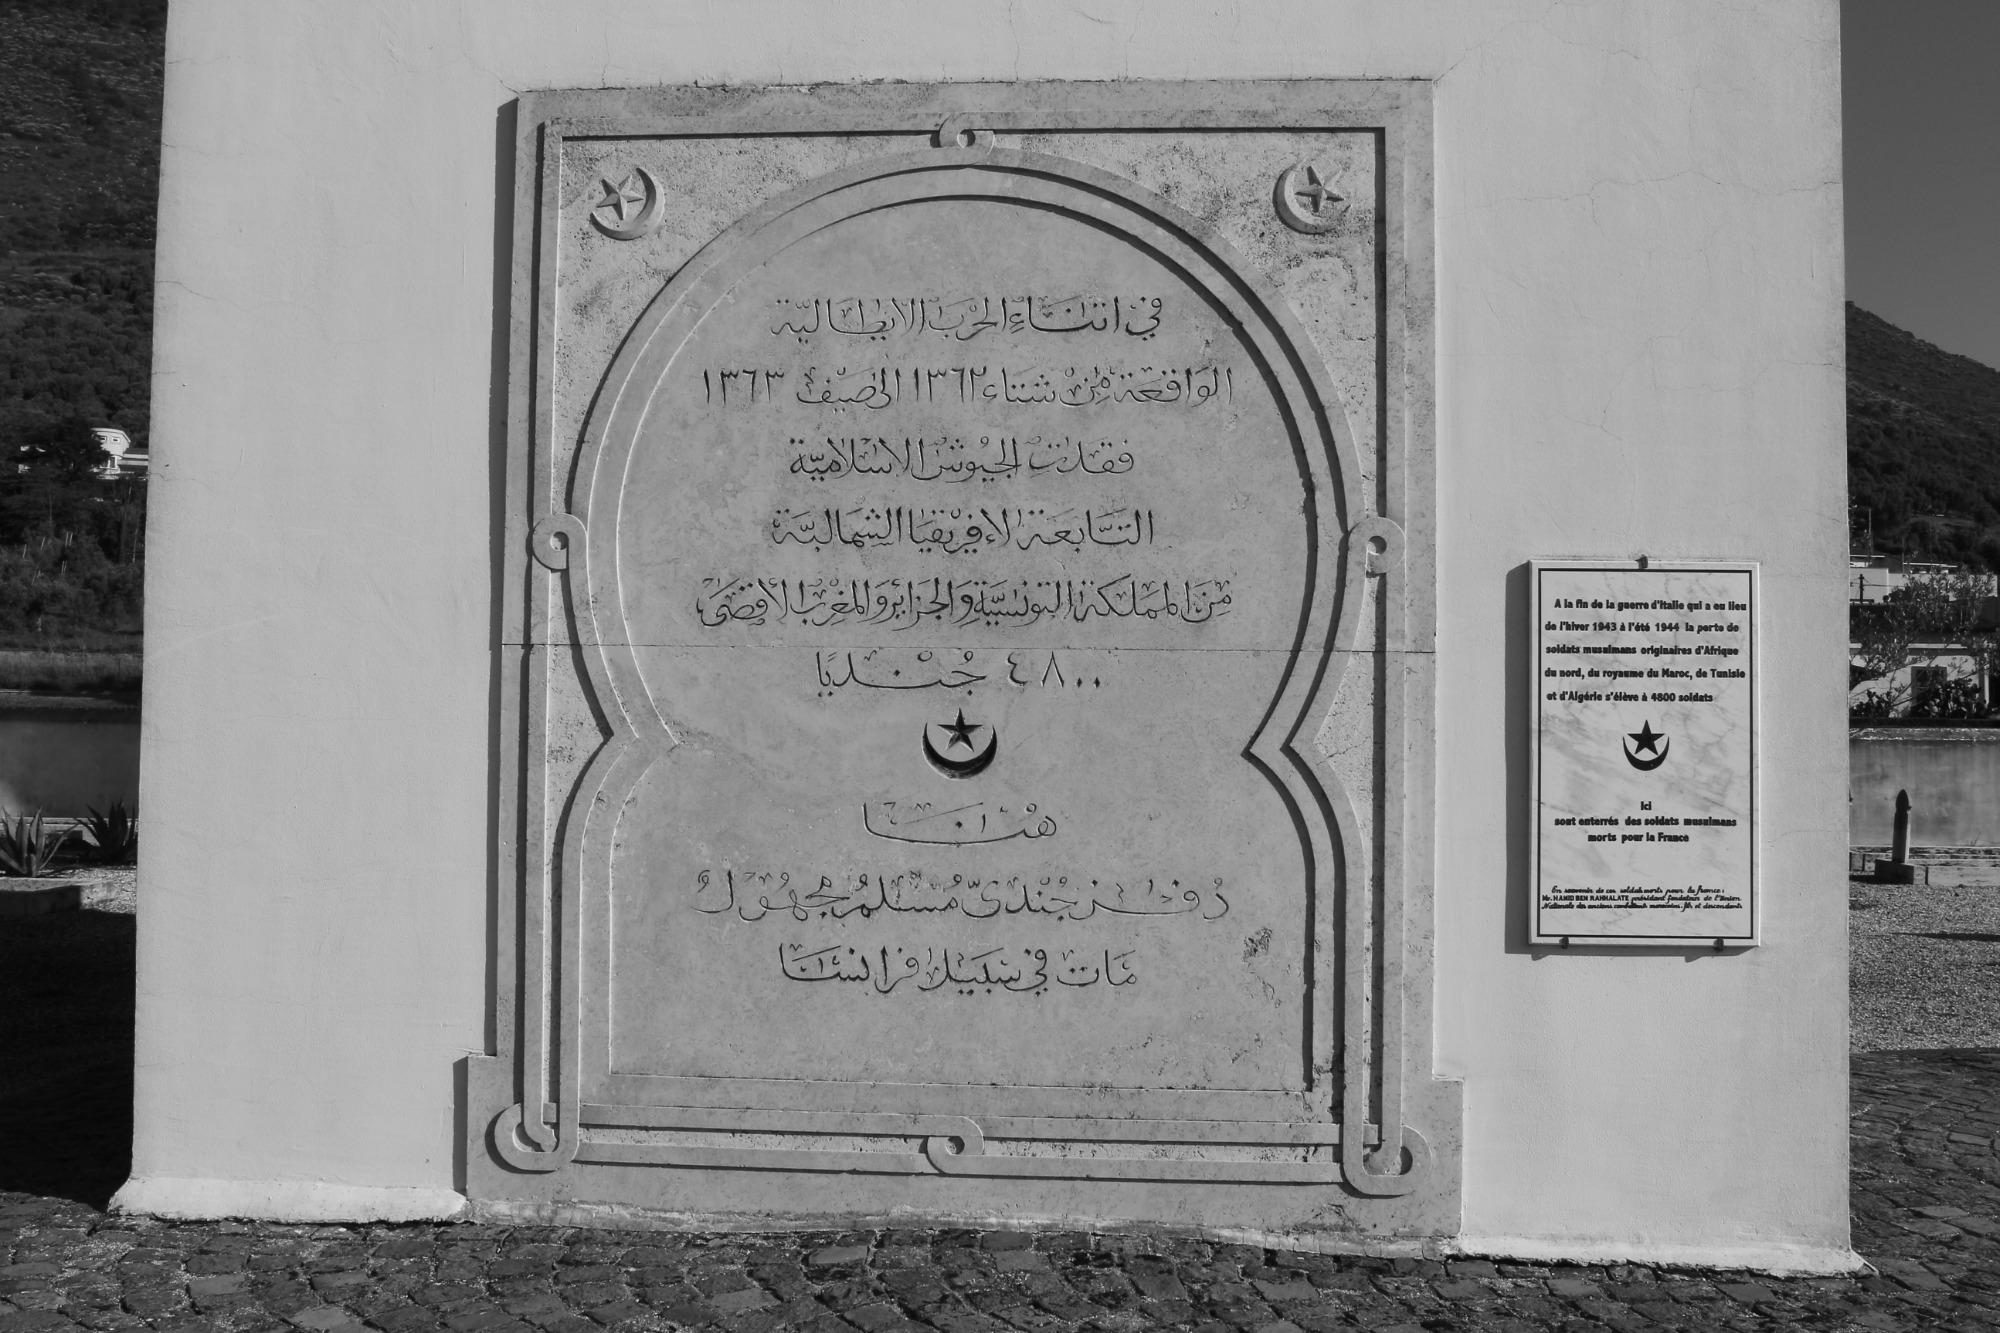 في اثناء الحرب الايطالية
الواقعة من شتاء ١٣٦٢ الى صيف ١٣٦٣
فقدت الجيوش الاسلامية
التابعة لافريقيا الشمالية
من المملكة التونسية والجزائر والمغرب الأقصى
٤٨٠٠ جنديا
هنا
دفن جندي مسلم مجهول
مات في سبيل فرانسا
A la fin de la guerre d'Italie qui a eu lieu
de l'hiver 1943 à l'été 1944 la perte de
soldats musulmans originaires d'Afrique
du nord, du royaume du Maroc, de Tunisie
et d'Algérie s'élève à 4800 soldats
Ici
sont enterrés des soldats musulmans
morts pour la France
En souvenir de ces soldats morts pour la france :
Mr. HAMID BEN RAHHALATE président fondateur de l'Union
Nationale des anciens combattants marocains. fils et descendants